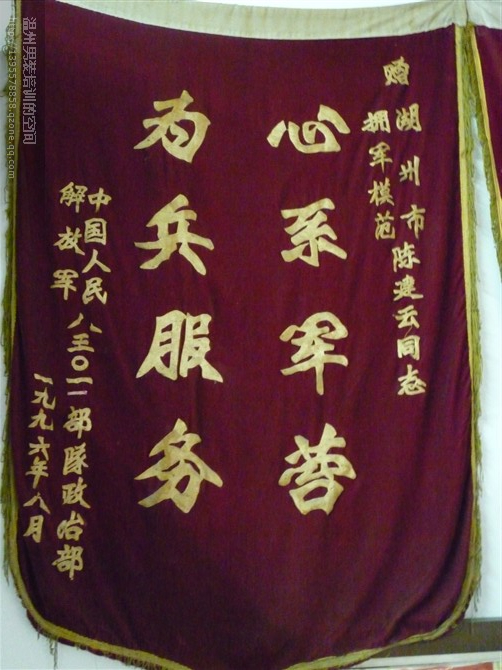 赠湖州市陈建云同志
拥军模范
心系军营
为兵服务
中国人民
解放军
八三〇一一部队政治部
一九九六年八月
温州男装培训的空间
http://1395578858.qzone.qq.com